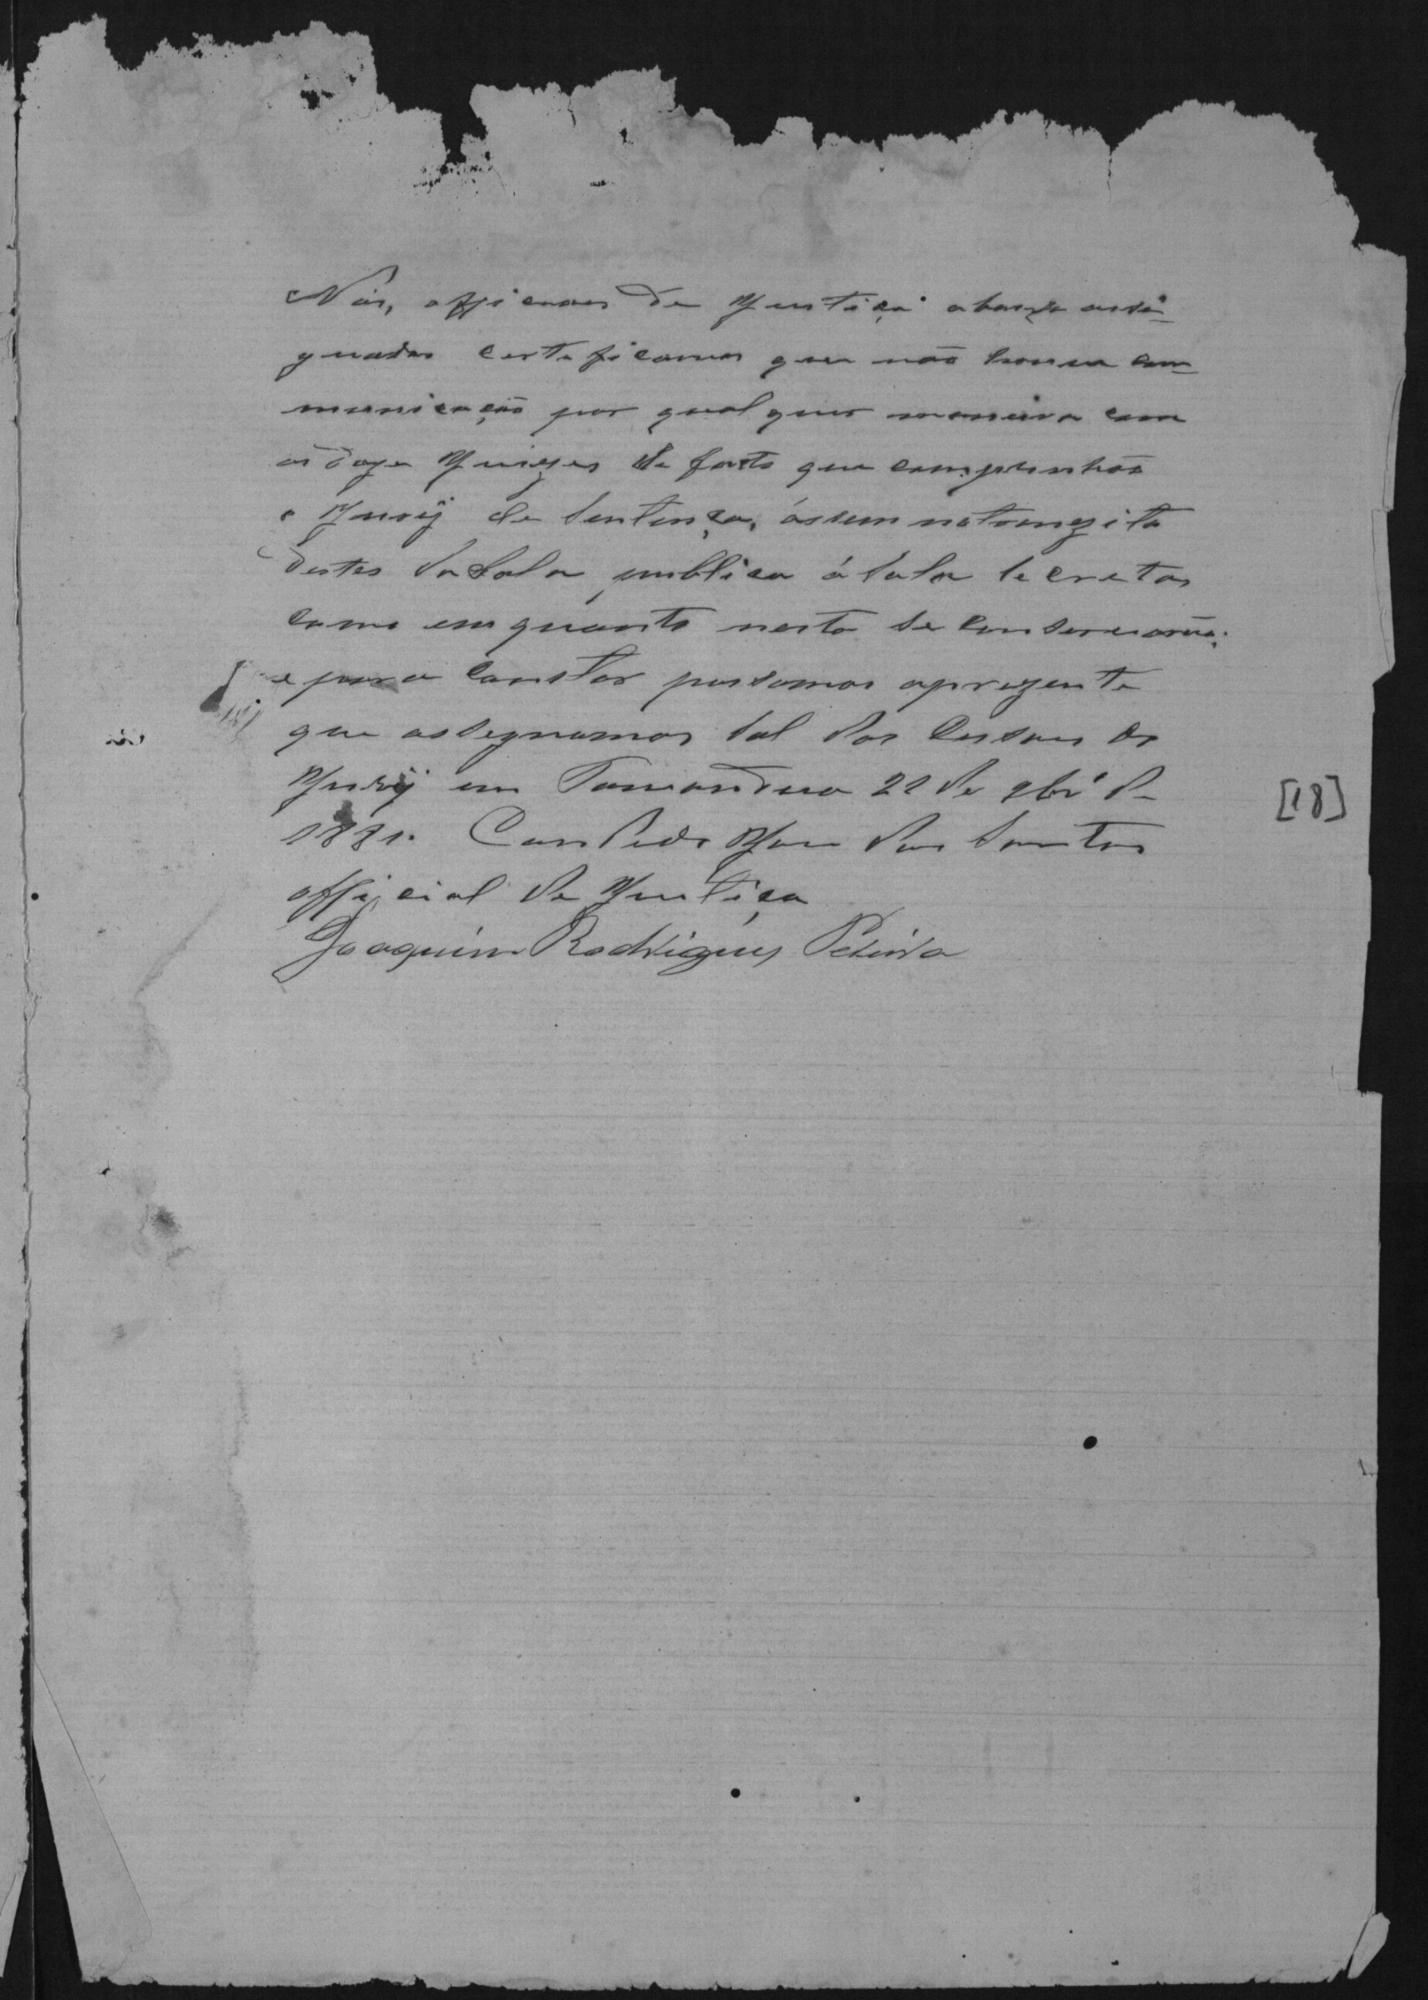 Nós, officiaes de Justiça abaixo assi-
gnados certificamos que não houve com-
municação por qualquer maneira com
os doze Juizes de facto que compunhão
o Jurÿ de Sentença, ássim no tranzito
destes da Sala publica á Sala Secreta,
como em quanto nesta se conservarão;
e para constar passamos aprezente
que assignamos Sal das Sessoes do
Jurÿ em Tamandua 22 de 9brº de
1881. Candido Joze dos Santos
official de Justiça
Joaquim Rodrigues
[18]